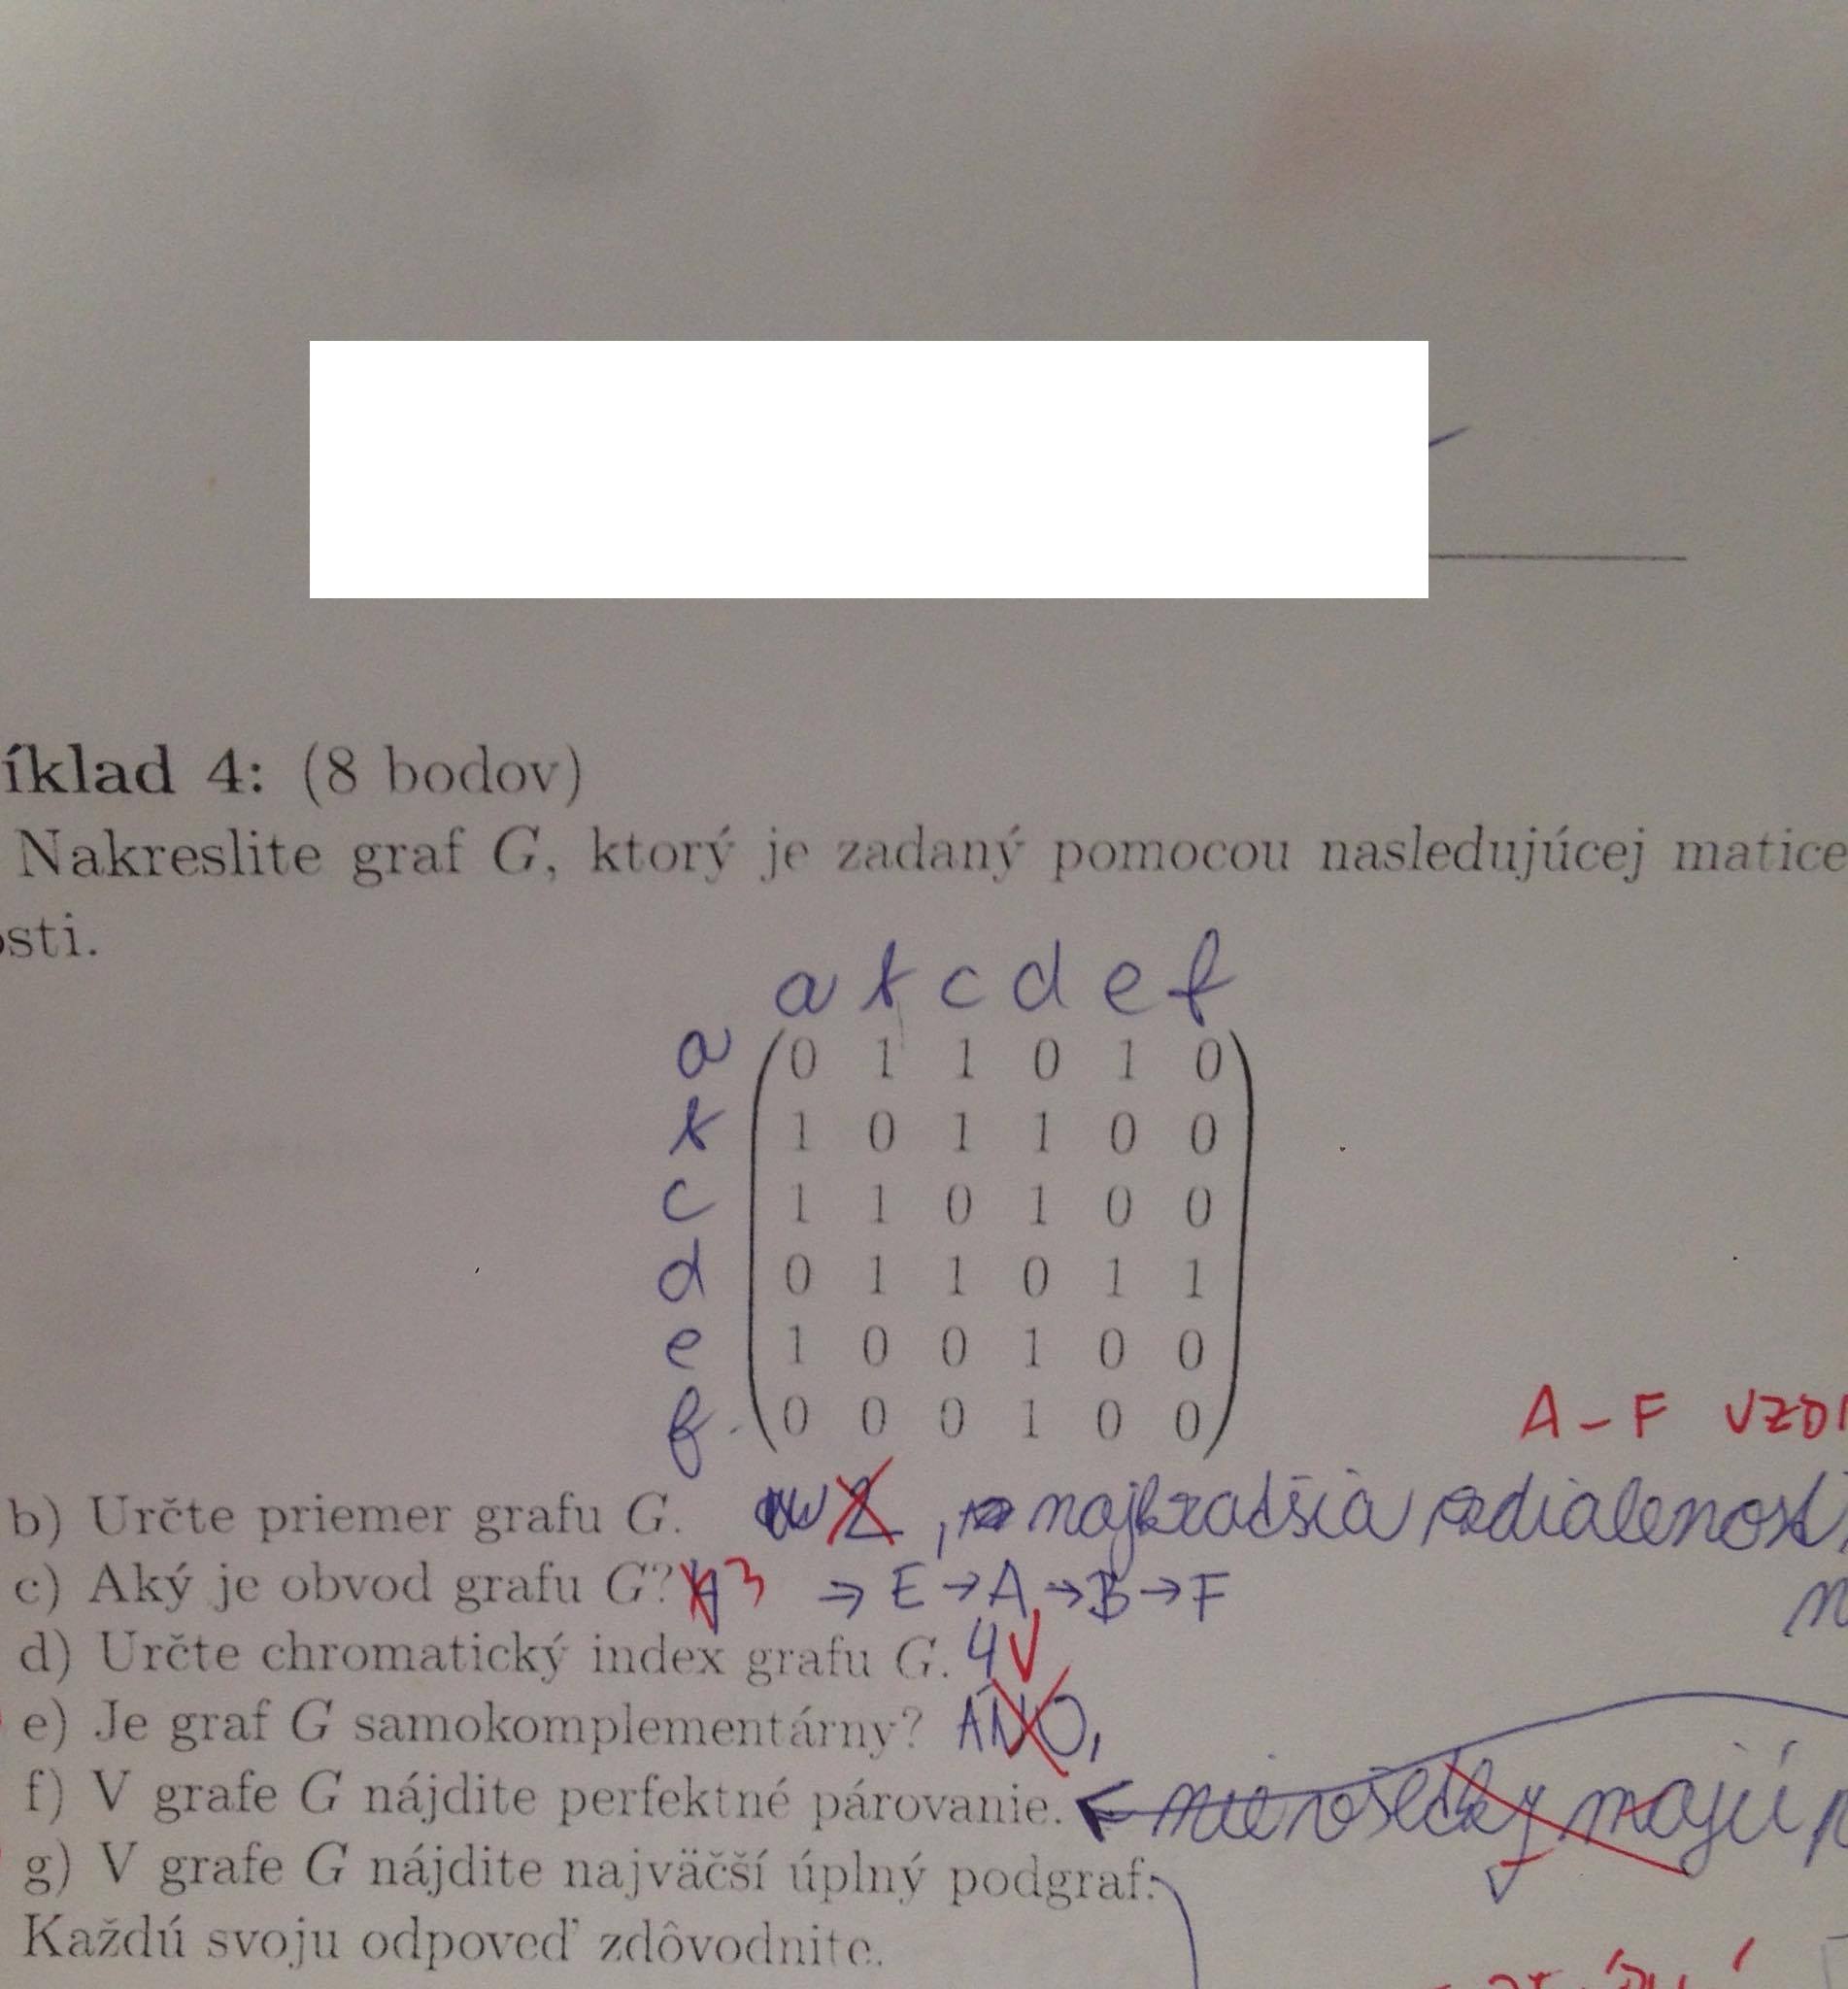 íklad 4: (8 bodov)
Nakreslite graf G, ktorý je zadaný pomocou nasledujúcej matice
osti.
a b c d e f
a 0 1 1 0 1 0
b 1 0 1 1 0 0
c 1 1 0 1 0 0
d 0 1 1 0 1 1
e 1 0 0 1 0 0
f 0 0 0 1 0 0
A - F
b) Určte priemer grafu G. 2, najkratšia
c) Aký je obvod grafu G? 3 ⇒ E → A → B → F
d) Určte chromatický index grafu G. 4
e) Je graf G samokomplementárny? ÁNO,
f) V grafe G nájdite perfektné párovanie. nie všetky majú
g) V grafe G nájdite najväčší úplný podgraf.
Každú svoju odpoveď zdôvodnite.